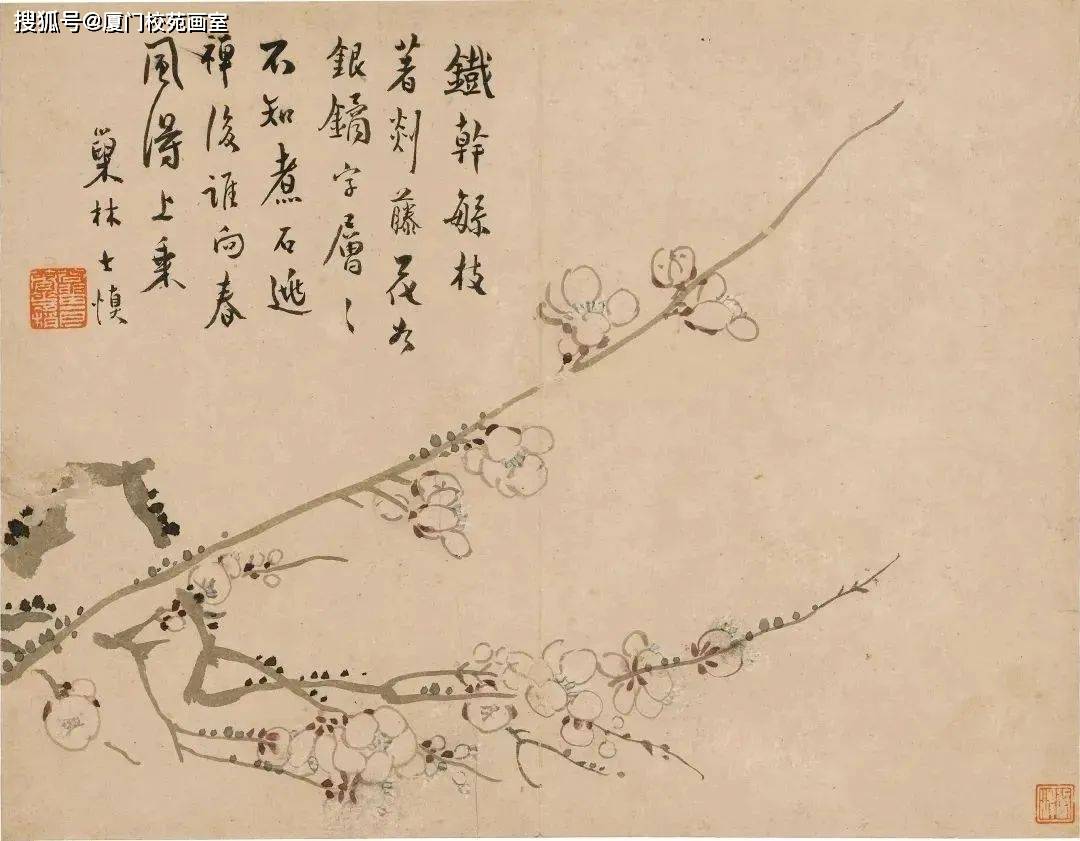 搜狐号@厦门校苑画室
鐵幹緐枝
著剡藤花
銀鏑字層〻
不知煮石逃
禪後誰向春
風得上乘
巢林士慎